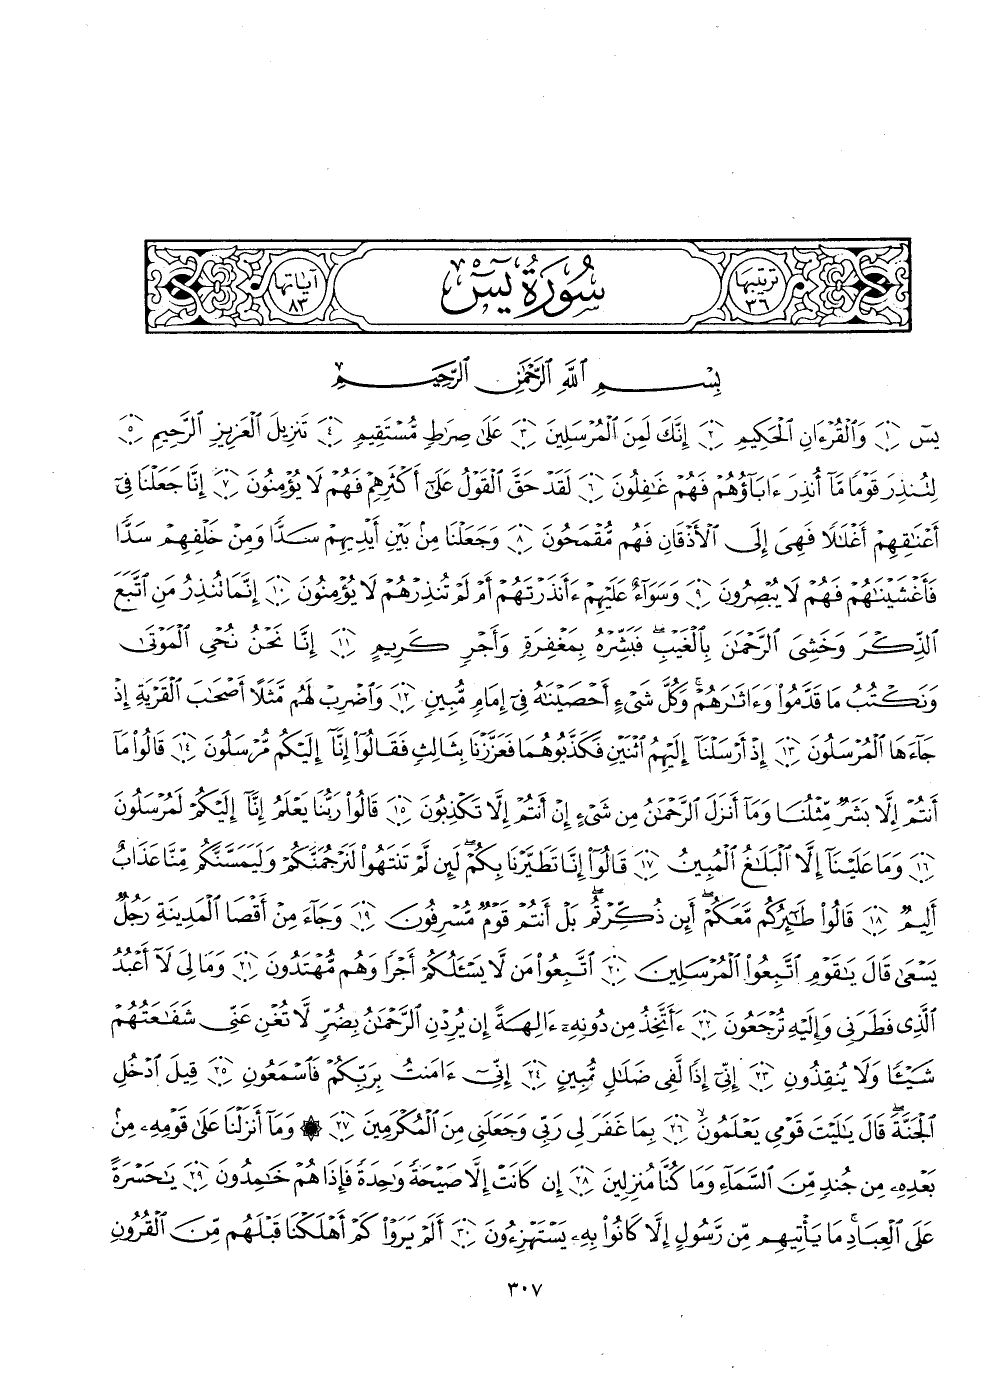 ترتيبها ٣٦ سُورَةُ يسٓ آياتها ٨٣
بِسْمِ ٱللَّهِ ٱلرَّحْمَٰنِ ٱلرَّحِيمِ
يسٓ ﴿١﴾ وَٱلْقُرْءَانِ ٱلْحَكِيمِ ﴿٢﴾ إِنَّكَ لَمِنَ ٱلْمُرْسَلِينَ ﴿٣﴾ عَلَىٰ صِرَٰطٍ مُّسْتَقِيمٍ ﴿٤﴾ تَنزِيلَ ٱلْعَزِيزِ ٱلرَّحِيمِ ﴿٥﴾
لِتُنذِرَ قَوْمًا مَّآ أُنذِرَ ءَابَآؤُهُمْ فَهُمْ غَٰفِلُونَ ﴿٦﴾ لَقَدْ حَقَّ ٱلْقَوْلُ عَلَىٰٓ أَكْثَرِهِمْ فَهُمْ لَا يُؤْمِنُونَ ﴿٧﴾ إِنَّا جَعَلْنَا فِىٓ
أَعْنَٰقِهِمْ أَغْلَٰلًا فَهِىَ إِلَى ٱلْأَذْقَانِ فَهُم مُّقْمَحُونَ ﴿٨﴾ وَجَعَلْنَا مِنۢ بَيْنِ أَيْدِيهِمْ سَدًّا وَمِنْ خَلْفِهِمْ سَدًّا
فَأَغْشَيْنَٰهُمْ فَهُمْ لَا يُبْصِرُونَ ﴿٩﴾ وَسَوَآءٌ عَلَيْهِمْ ءَأَنذَرْتَهُمْ أَمْ لَمْ تُنذِرْهُمْ لَا يُؤْمِنُونَ ﴿١٠﴾ إِنَّمَا تُنذِرُ مَنِ ٱتَّبَعَ
ٱلذِّكْرَ وَخَشِىَ ٱلرَّحْمَٰنَ بِٱلْغَيْبِ ۖ فَبَشِّرْهُ بِمَغْفِرَةٍ وَأَجْرٍ كَرِيمٍ ﴿١١﴾ إِنَّا نَحْنُ نُحْىِ ٱلْمَوْتَىٰ
وَنَكْتُبُ مَا قَدَّمُوا۟ وَءَاثَٰرَهُمْ ۚ وَكُلَّ شَىْءٍ أَحْصَيْنَٰهُ فِىٓ إِمَامٍ مُّبِينٍ ﴿١٢﴾ وَٱضْرِبْ لَهُم مَّثَلًا أَصْحَٰبَ ٱلْقَرْيَةِ إِذْ
جَآءَهَا ٱلْمُرْسَلُونَ ﴿١٣﴾ إِذْ أَرْسَلْنَآ إِلَيْهِمُ ٱثْنَيْنِ فَكَذَّبُوهُمَا فَعَزَّزْنَا بِثَالِثٍ فَقَالُوٓا۟ إِنَّآ إِلَيْكُم مُّرْسَلُونَ ﴿١٤﴾ قَالُوا۟ مَآ
أَنتُمْ إِلَّا بَشَرٌ مِّثْلُنَا وَمَآ أَنزَلَ ٱلرَّحْمَٰنُ مِن شَىْءٍ إِنْ أَنتُمْ إِلَّا تَكْذِبُونَ ﴿١٥﴾ قَالُوا۟ رَبُّنَا يَعْلَمُ إِنَّآ إِلَيْكُمْ لَمُرْسَلُونَ
﴿١٦﴾ وَمَا عَلَيْنَآ إِلَّا ٱلْبَلَٰغُ ٱلْمُبِينُ ﴿١٧﴾ قَالُوٓا۟ إِنَّا تَطَيَّرْنَا بِكُمْ ۖ لَئِن لَّمْ تَنتَهُوا۟ لَنَرْجُمَنَّكُمْ وَلَيَمَسَّنَّكُم مِّنَّا عَذَابٌ
أَلِيمٌ ﴿١٨﴾ قَالُوا۟ طَٰٓئِرُكُم مَّعَكُمْ ۚ أَئِن ذُكِّرْتُم ۚ بَلْ أَنتُمْ قَوْمٌ مُّسْرِفُونَ ﴿١٩﴾ وَجَآءَ مِنْ أَقْصَا ٱلْمَدِينَةِ رَجُلٌ
يَسْعَىٰ قَالَ يَٰقَوْمِ ٱتَّبِعُوا۟ ٱلْمُرْسَلِينَ ﴿٢٠﴾ ٱتَّبِعُوا۟ مَن لَّا يَسْـَٔلُكُمْ أَجْرًا وَهُم مُّهْتَدُونَ ﴿٢١﴾ وَمَا لِىَ لَآ أَعْبُدُ
ٱلَّذِى فَطَرَنِى وَإِلَيْهِ تُرْجَعُونَ ﴿٢٢﴾ ءَأَتَّخِذُ مِن دُونِهِۦٓ ءَالِهَةً إِن يُرِدْنِ ٱلرَّحْمَٰنُ بِضُرٍّ لَّا تُغْنِ عَنِّى شَفَٰعَتُهُمْ
شَيْـًٔا وَلَا يُنقِذُونِ ﴿٢٣﴾ إِنِّىٓ إِذًا لَّفِى ضَلَٰلٍ مُّبِينٍ ﴿٢٤﴾ إِنِّىٓ ءَامَنتُ بِرَبِّكُمْ فَٱسْمَعُونِ ﴿٢٥﴾ قِيلَ ٱدْخُلِ
ٱلْجَنَّةَ ۖ قَالَ يَٰلَيْتَ قَوْمِى يَعْلَمُونَ ﴿٢٦﴾ بِمَا غَفَرَ لِى رَبِّى وَجَعَلَنِى مِنَ ٱلْمُكْرَمِينَ ﴿٢٧﴾ ۞ وَمَآ أَنزَلْنَا عَلَىٰ قَوْمِهِۦ مِنۢ
بَعْدِهِۦ مِن جُندٍ مِّنَ ٱلسَّمَآءِ وَمَا كُنَّا مُنزِلِينَ ﴿٢٨﴾ إِن كَانَتْ إِلَّا صَيْحَةً وَٰحِدَةً فَإِذَا هُمْ خَٰمِدُونَ ﴿٢٩﴾ يَٰحَسْرَةً
عَلَى ٱلْعِبَادِ ۚ مَا يَأْتِيهِم مِّن رَّسُولٍ إِلَّا كَانُوا۟ بِهِۦ يَسْتَهْزِءُونَ ﴿٣٠﴾ أَلَمْ يَرَوْا۟ كَمْ أَهْلَكْنَا قَبْلَهُم مِّنَ ٱلْقُرُونِ
٣٠٧